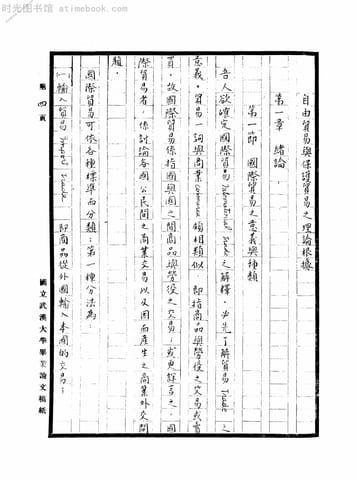 时光图书馆 - atimebook.com
自由貿易與保護貿易之理論根據
第一章 緒論
第一節 國際貿易之意義與種類
吾人欲確定國際貿易 International Trade 之解釋，必先了解貿易 Trade 之
意義。貿易一詞與商業 commerce 頗相類似，即指商品與勞役之交易或買
賣，故國際貿易係指國與國之間商品與勞役之交易；或更詳言之，國
際貿易者，係討論各國公民間之商業交易以及因而產生之商業外交問
題。
國際貿易可依各種標準而分類：第一種分法為：
一輸入貿易 Import Trade 即商品從外國輸入本國的交易；
第 四 頁
國立武漢大學畢業論文稿紙